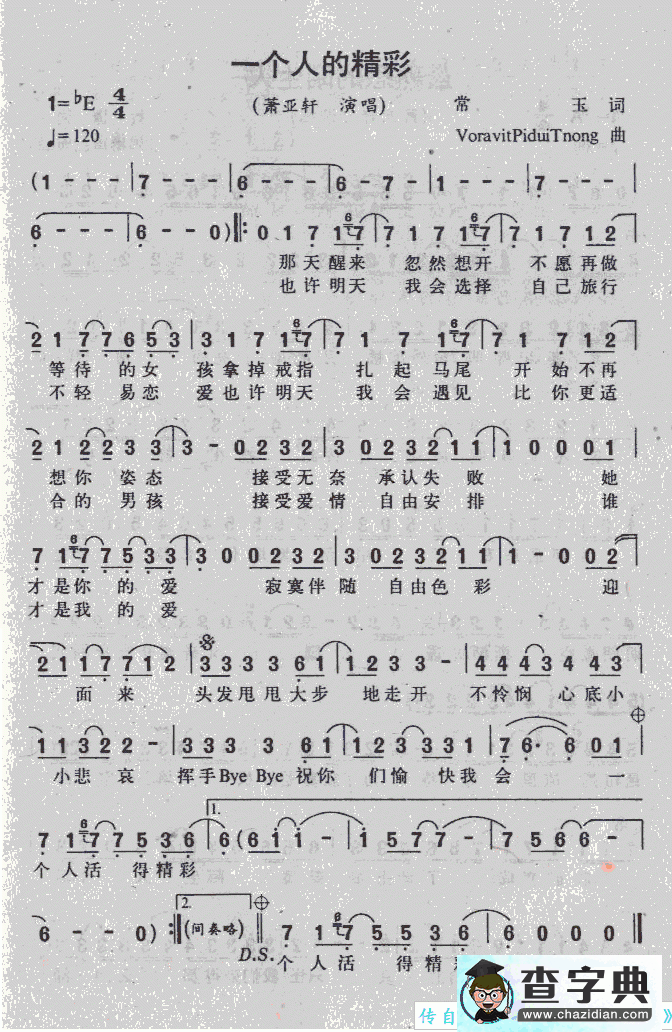 一个人的精彩
1=♭E 4/4 （萧亚轩 演唱） 常 玉 词
♩=120 VoravitPiduiTnong 曲
(1 - - - | 7 - - - | 6 - - - | 6 - 6 7 | 1 - - - | 7 - - -
6 - - - | 6 - - 0) 𝄆 0 1 7 1 7 | 7 1 7 1 7 | 7 1 7 1 2
那天醒来 忽然想开 不愿再做
也许明天 我会选择 自己旅行
2 1 7 7 6 5 3 | 3 1 7 1 7 | 7 1 7 1 7 | 7 1 7 1 2
等待的女 孩拿掉戒指 扎起马尾 开始不再
不轻易恋 爱也许明天 我会遇见 比你更适
2 1 2 2 3 3 | 3 - 0 2 3 2 | 3 0 2 3 2 1 1 | 1 0 0 0 1
想你姿态 接受无奈 承认失败 她
合的男孩 接受爱情 自由安排 谁
7 1 7 7 5 3 3 | 3 0 0 2 3 2 | 3 0 2 3 2 1 1 | 1 - 0 0 2
才是你的爱 寂寞伴随 自由色彩 迎
才是我的爱
2 1 1 7 7 1 2 | 3 3 3 3 3 6 1 | 1 2 3 3 - | 4 4 4 3 4 4 3
面来 头发甩甩大步 地走开 不怜悯 心底小
1 1 3 2 2 - | 3 3 3 3 6 1 | 1 2 3 3 3 1 | 7 6 · 6 0 1
小悲哀 挥手Bye Bye祝你 们愉快我会 一
1.
7 1 7 7 5 3 6 | 6 (6 1 1 - | 1 5 7 7 - | 7 5 6 6 -
个人活 得精彩
2.
6 - - 0) 𝄇 (间奏略) ‖ 7 1 7 1 5 3 6 | 6 0 0 0 ‖
D.S. 个人活 得精
传自
查字典
www.chazidian.com